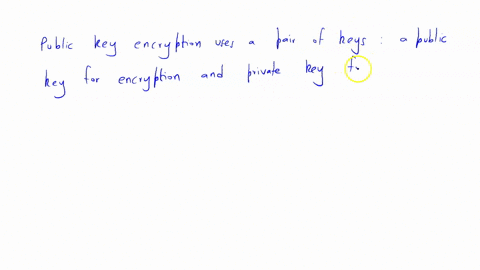 Public key encryption uses a pair of keys : a public
key for encryption and private key